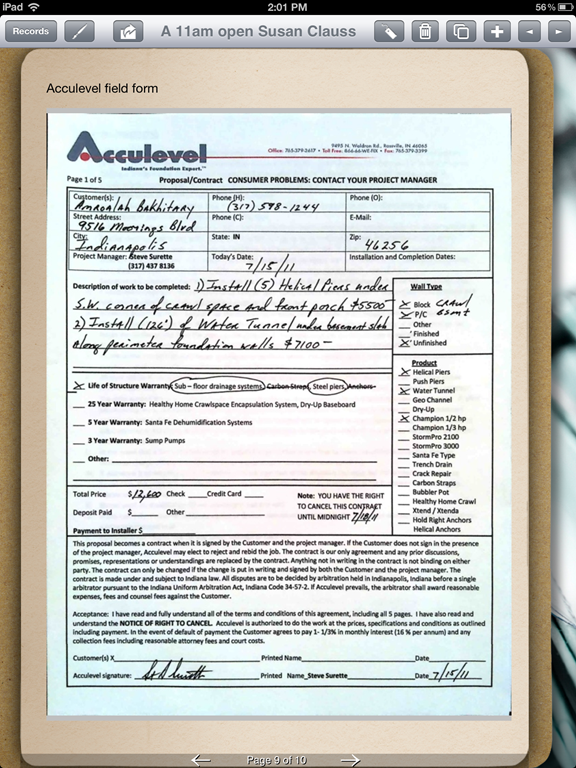 iPad 2:01 PM 56%
Records A 11am open Susan Clauss
Acculevel field form
Acculevel
Indiana's Foundation Expert.™
9495 N. Waldron Rd., Rossville, IN 46065
Office: 765-379-2617 • Toll Free: 866-66-WE-FIX • Fax: 765-379-3399
Page 1 of 5 Proposal/Contract CONSUMER PROBLEMS: CONTACT YOUR PROJECT MANAGER
Customer(s): Amroalah Bakhitary Phone (H): (317) 598-1244 Phone (O):
Street Address: 9516 Moorings Blvd Phone (C): E-Mail:
City: Indianapolis State: IN Zip: 46256
Project Manager: Steve Surette Today's Date: 7/15/11 Installation and Completion Dates:
(317) 437 8136
Description of work to be completed: 1) Install (5) Helical Piers under
S.W. corner of crawl space and front porch $5500-
2) Install (126') of Water Tunnel under basement slab
along perimeter foundation walls $7100-
X Life of Structure Warranty: Sub – floor drainage systems, Carbon Straps, Steel piers, Anchors
25 Year Warranty: Healthy Home Crawlspace Encapsulation System, Dry-Up Baseboard
5 Year Warranty: Santa Fe Dehumidification Systems
3 Year Warranty: Sump Pumps
Other:
Wall Type
X Block crawl
X P/C bsmt
Other
Finished
X Unfinished
Product
X Helical Piers
Push Piers
X Water Tunnel
Geo Channel
Dry-Up
X Champion 1/2 hp
Champion 1/3 hp
StormPro 2100
StormPro 3000
Santa Fe Type
Trench Drain
Crack Repair
Carbon Straps
Bubbler Pot
Healthy Home Crawl
Xtend / Xtenda
Hold Right Anchors
Helical Anchors
Total Price $12,600 Check Credit Card
Deposit Paid $ Other
Payment to Installer $
Note: YOU HAVE THE RIGHT
TO CANCEL THIS CONTRACT
UNTIL MIDNIGHT 7/18/11
This proposal becomes a contract when it is signed by the Customer and the project manager. If the Customer does not sign in the presence
of the project manager, Acculevel may elect to reject and rebid the job. The contract is our only agreement and any prior discussions,
promises, representations or understandings are replaced by the contract. Anything not in writing in the contract is not binding on either
party. The contract can only be changed if the change is put in writing and signed by both the Customer and the project manager. The
contract is made under and subject to Indiana law. All disputes are to be decided by arbitration held in Indianapolis, Indiana before a single
arbitrator pursuant to the Indiana Uniform Arbitration Act, Indiana Code 34-57-2. If Acculevel prevails, the arbitrator shall award reasonable
expenses, fees and counsel fees against the Customer.
Acceptance: I have read and fully understand all of the terms and conditions of this agreement, including all 5 pages. I have also read and
understand the NOTICE OF RIGHT TO CANCEL. Acculevel is authorized to do the work at the prices, specifications and conditions as outlined
including payment. In the event of default of payment the Customer agrees to pay 1- 1/3% in monthly interest (16 % per annum) and any
collection fees including reasonable attorney fees and court costs.
Customer(s) X Printed Name Date
Acculevel signature: Printed Name Steve Surette Date 7/15/11
Page 9 of 10